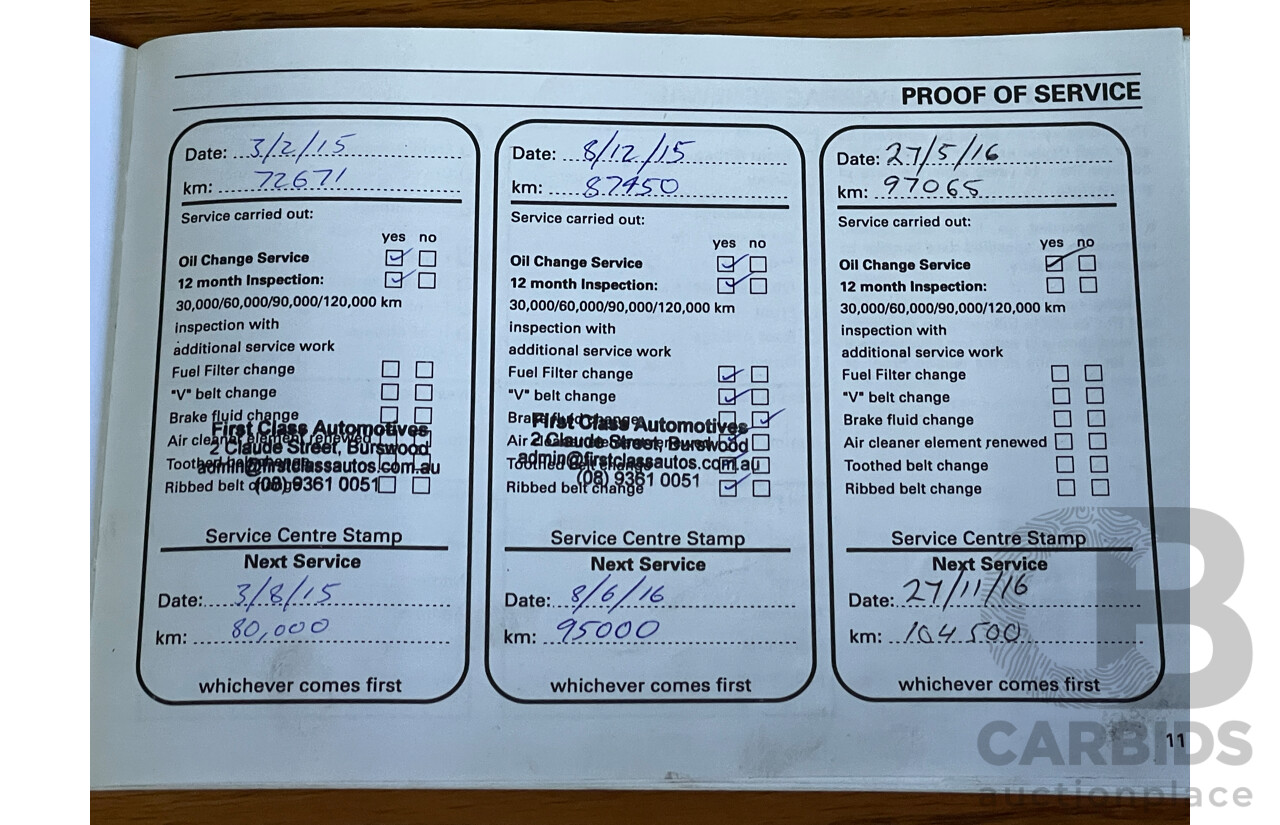 PROOF OF SERVICE
Date: 3/2/15
km: 72671
Service carried out:
yes no
Oil Change Service
12 month Inspection:
30,000/60,000/90,000/120,000 km
inspection with
additional service work
Fuel Filter change
"V" belt change
Brake fluid change
First Class Automotives
Air cleaner element renewed
2 Claude Street, Burswood
Toothed belt change
admin@firstclassautos.com.au
Ribbed belt change
(08) 9361 0051
Service Centre Stamp
Next Service
Date: 3/8/15
km: 80,000
whichever comes first
Date: 8/12/15
km: 87450
Service carried out:
yes no
Oil Change Service
12 month Inspection:
30,000/60,000/90,000/120,000 km
inspection with
additional service work
Fuel Filter change
"V" belt change
Brake fluid change
First Class Automotives
Air cleaner element renewed
2 Claude Street, Burswood
admin@firstclassautos.com.au
Toothed belt change
(08) 9361 0051
Ribbed belt change
Service Centre Stamp
Next Service
Date: 8/6/16
km: 95000
whichever comes first
Date: 27/5/16
km: 97065
Service carried out:
yes no
Oil Change Service
12 month Inspection:
30,000/60,000/90,000/120,000 km
inspection with
additional service work
Fuel Filter change
"V" belt change
Brake fluid change
Air cleaner element renewed
Toothed belt change
Ribbed belt change
Service Centre Stamp
Next Service
Date: 27/11/16
km: 104 500
whichever comes first
11
B
CARBIDS
auctionplace